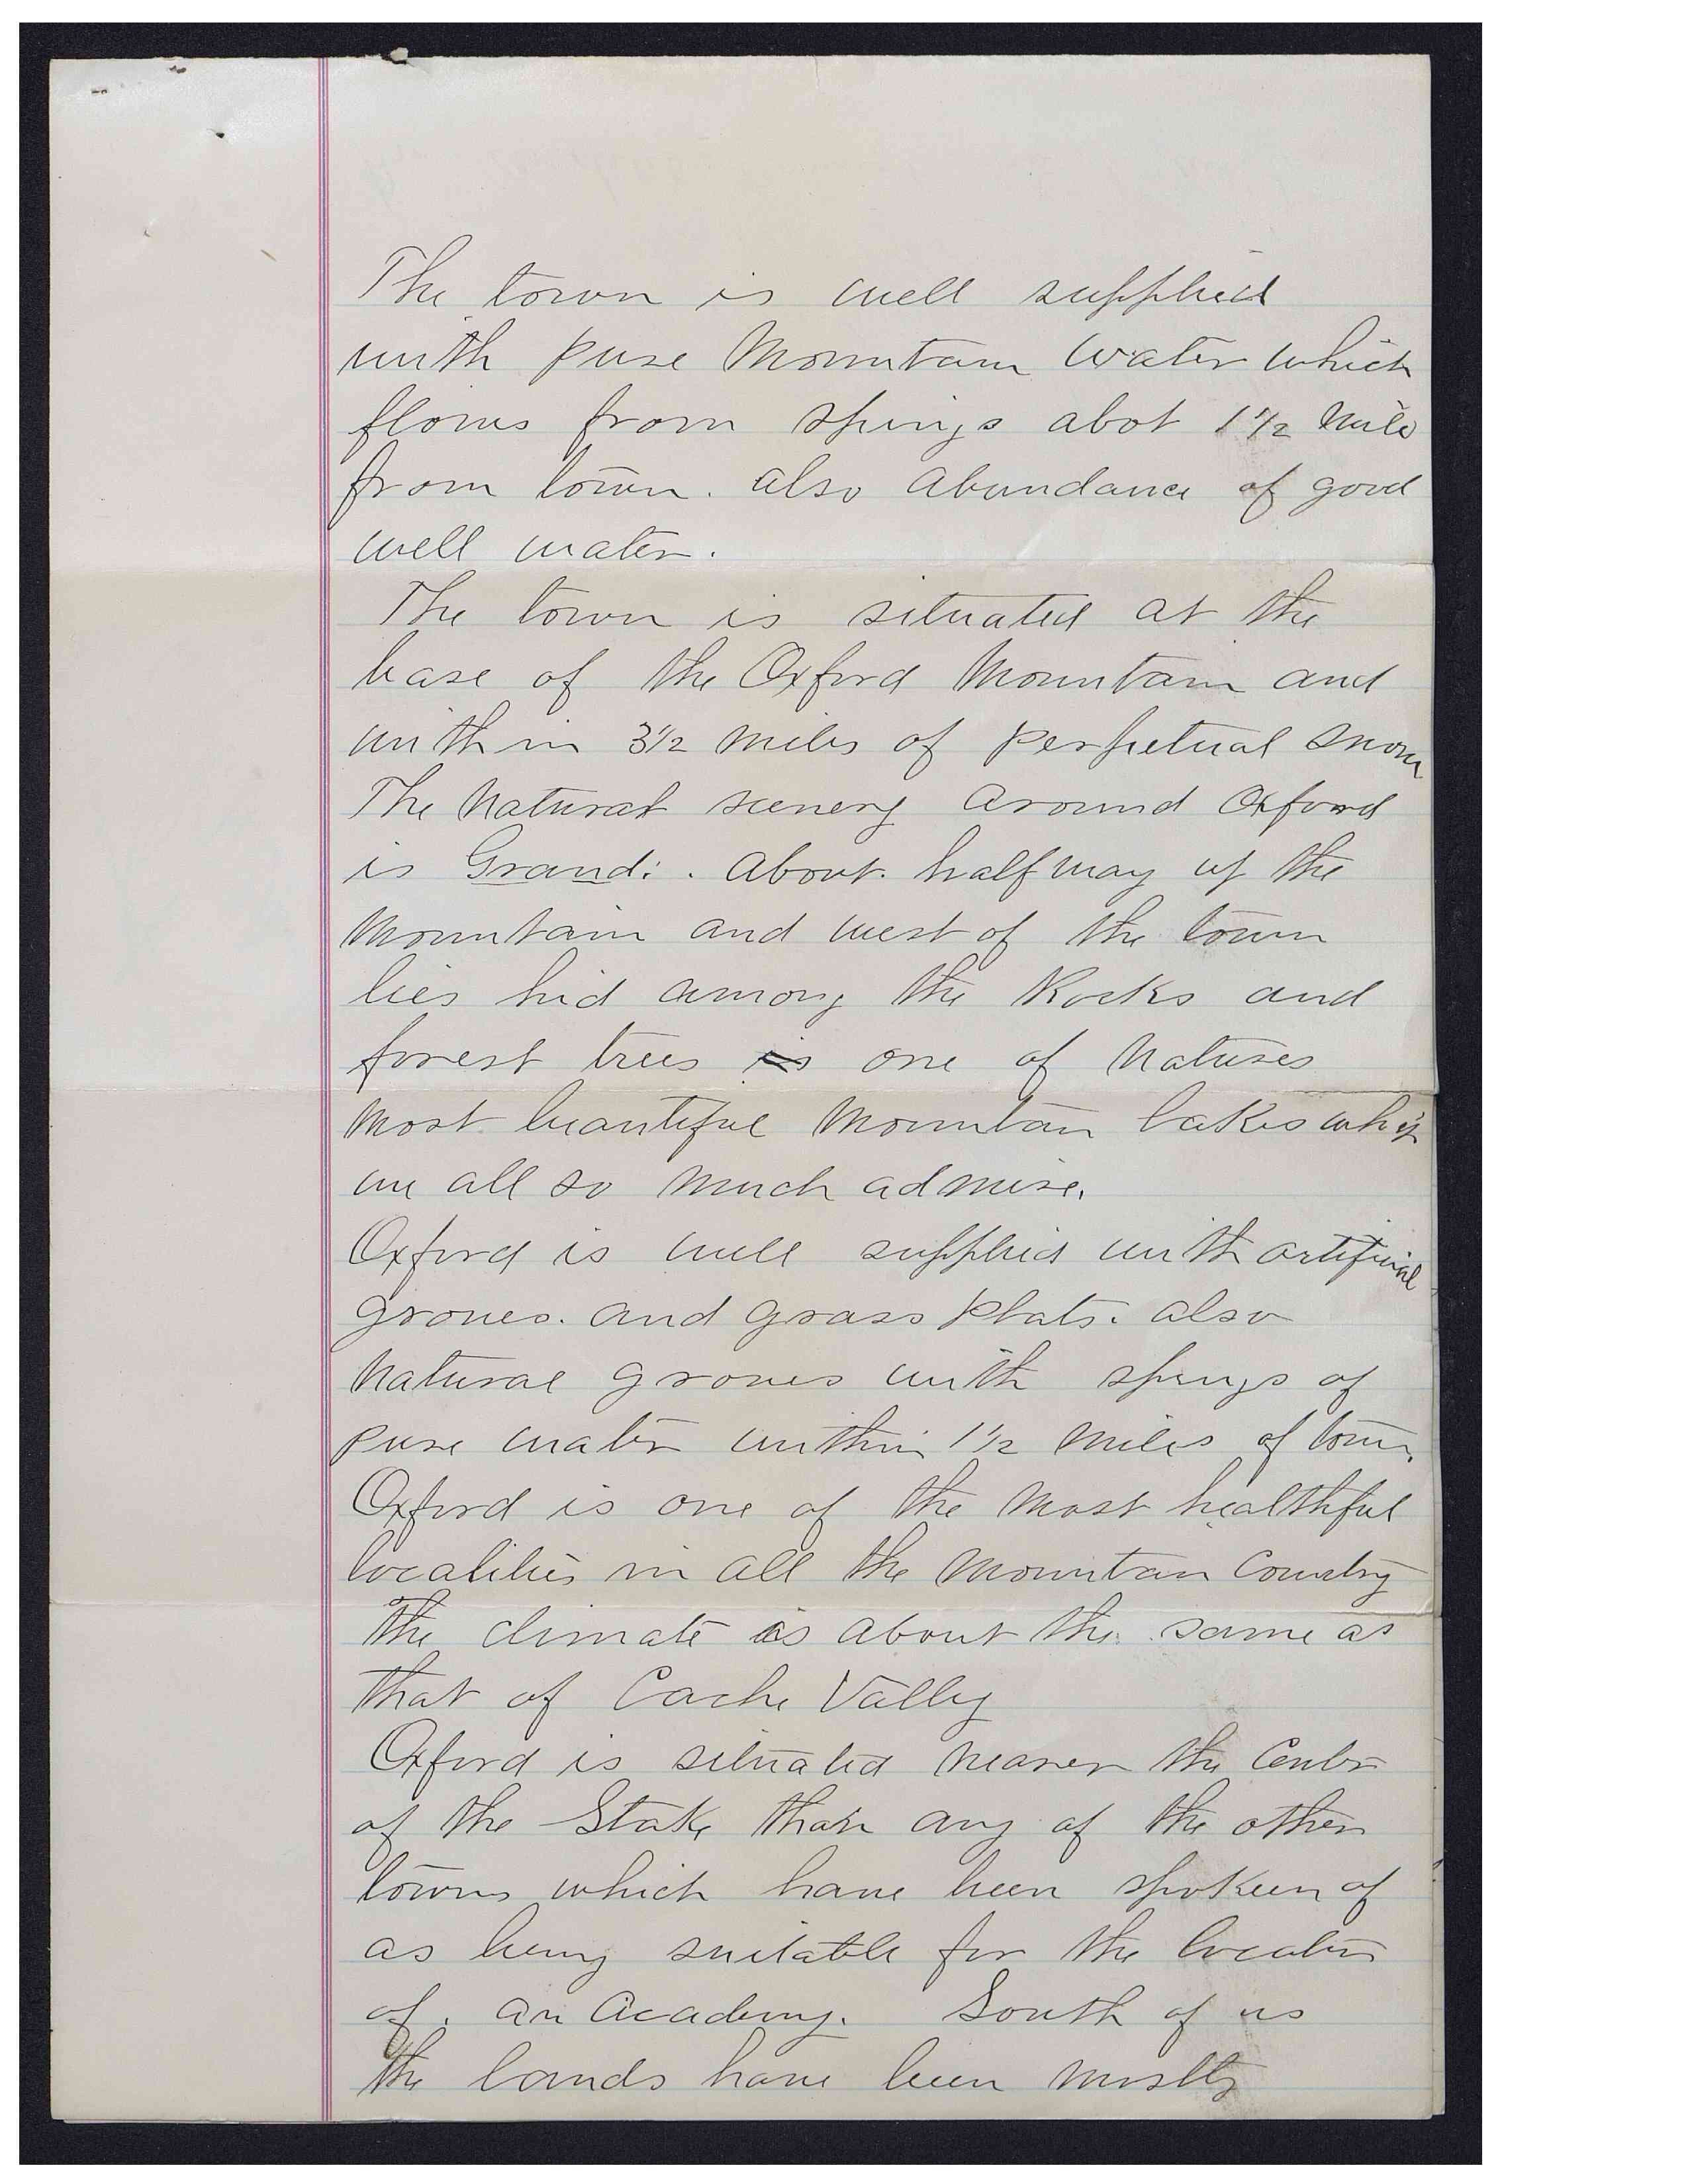 The town is well supplied
with pure Mountain water which
flows from springs abot 1 1/2 mile
from town. also abundance of good
well water.
The town is situated at the
base of the Oxford Mountain and
within 3 1/2 miles of perpetual snow
The Natural scenery around Oxford
is Grand: . About. half way up the
Mountain and west of the town
lies hid among the Rocks and
forest trees is one of Natures
Most beautiful Mountain lakes which
we all so much admire.
Oxford is well supplied with artificial
groves. and grass plats. also
Natural groves with springs of
pure water within 1 1/2 miles of town.
Oxford is one of the Most healthful
localities in all the Mountan Country
The climate is about the same as
that of Cache Vally
Oxford is situated nearer the Center
of the Stake than any of the other
towns which have been spokeen of
as being suitable for the location
of. an Academy. South of us
the lands have been mostly